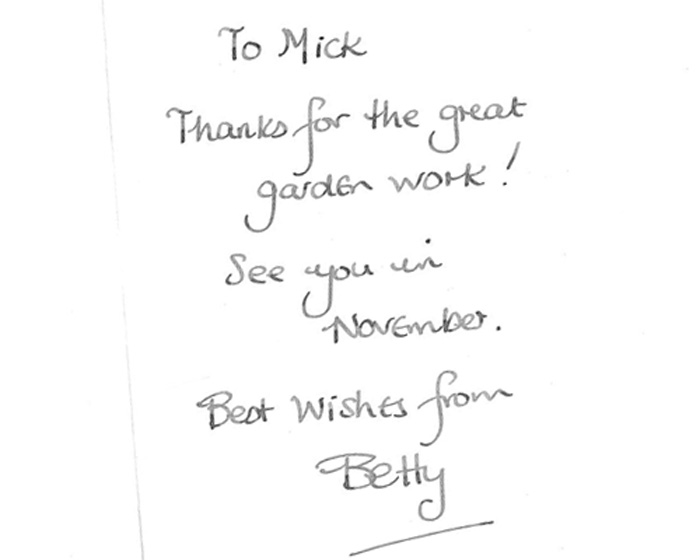 To Mick
Thanks for the great
garden work!
See you in
November.
Best Wishes from
Betty